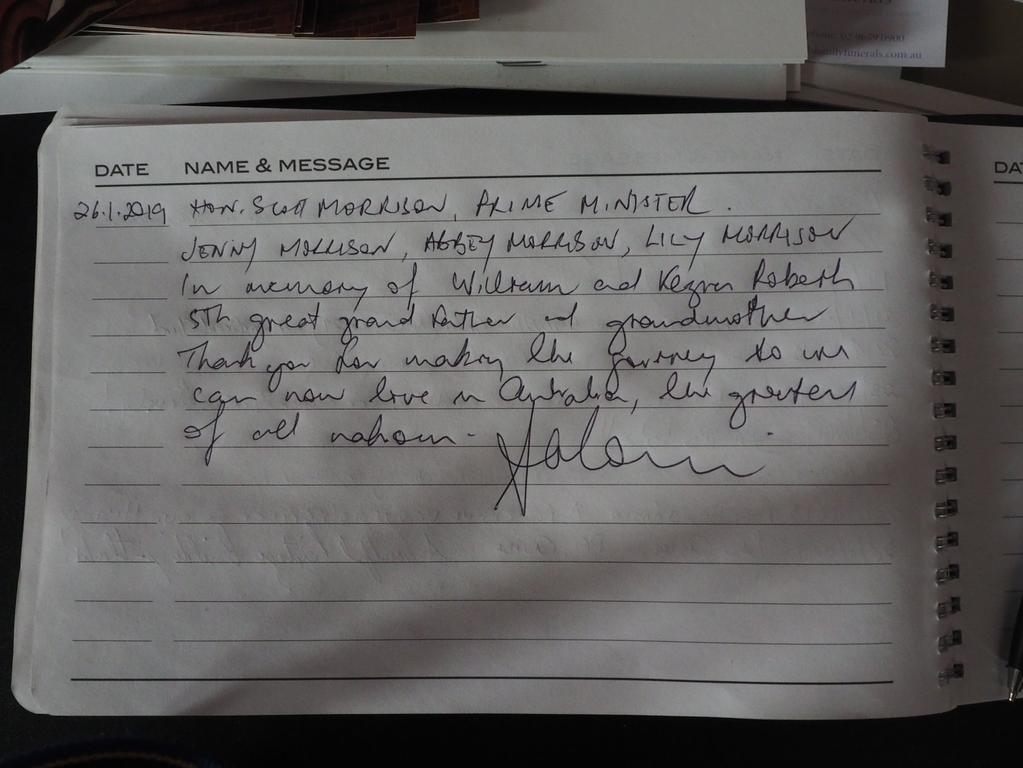 Phone: 02 9679 0900
DATE NAME & MESSAGE
DA
26.1.2019 HON. SCOTT MORRISON, PRIME MINISTER.
JENNY MORRISON, ABBEY MORRISON, LILY MORRISON
In memory of William and Kezia Roberts
5th great grand father and grandmother
Thank you for making the journey so we
can now live in Australia, the greatest
of all nations.